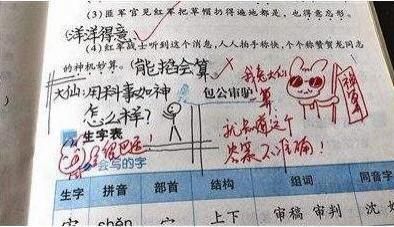 (3)匪军官见红军把草帽扔得遍地都是,也得意忘形。
(洋洋得意)
(4)红军战士听到这个消息,人人拍手称快,个个称赞贺龙同志
的神机妙算。(能掐会算)
大仙:用料事如神
怎么样?
包公审驴
我惹大仙
算
就知道这个
答案不准确!
生字表
会写的字
生字 拼音 部首 结构 组词 同音字
shěn 宀 上下 审稿 审判 沈